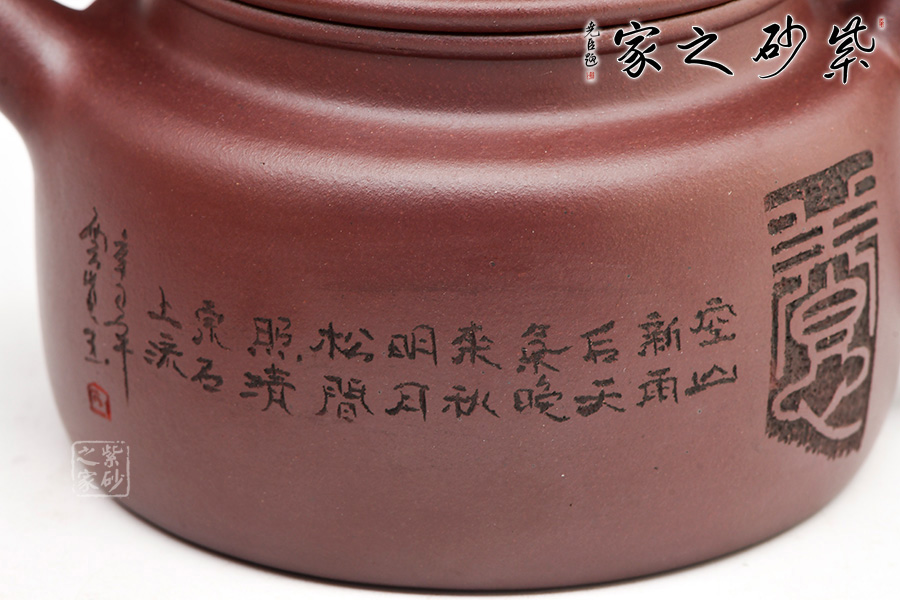 紫砂之家
空山
新雨
后天
氣晚
来秋
明月
松間
照清
泉石
上流
紫砂
之家